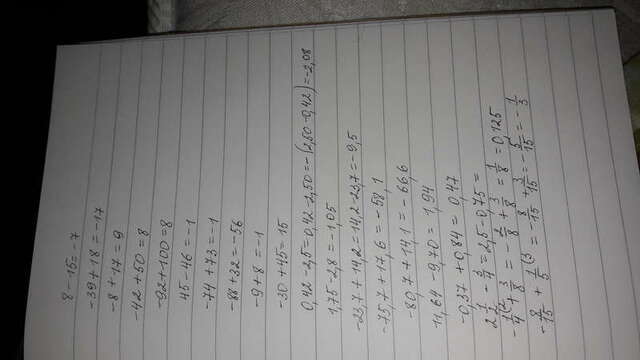 8-15=-7
-39+18=-17
-8+17=9
-42+50=8
-92+100=8
45-46=-1
-74+73=-1
-88+32=-56
-9+8=-1
-30+45=15
0,42-2,5=0,42-2,50=-(2,50-0,42)=-2,08
1,75-2,8=-1,05
-23,7+14,2=14,2-23,7=-9,5
-75,7+17,6=-58,1
-80,7+14,1=-66,6
11,64-9,70=1,94
-0,37+0,84=0,47
2 1/2 - 3/4 = 2,5-0,75=
-1/4(2 + 3/8 = -2/8 + 3/8 = 1/8 = 0,125
-8/15 + 1/5(3 = -8/15 + 3/15 = -5/15 = -1/3